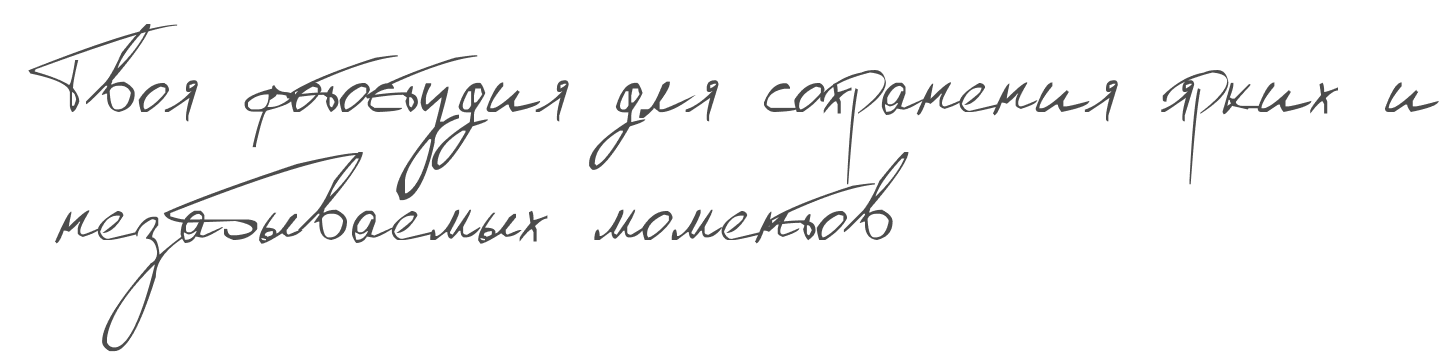 Твоя фотостудия для сохранения ярких и
незабываемых моментов